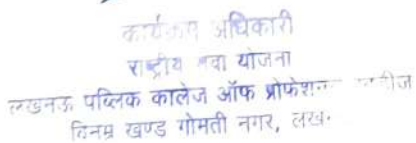 कार्यक्रम अधिकारी
राष्ट्रीय सेवा योजना
लखनऊ पब्लिक कालेज ऑफ प्रोफेशनल
विनम्र खण्ड गोमती नगर, लख